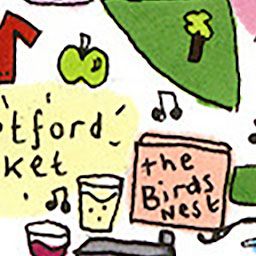 tford
ket
the
Birds
Nest